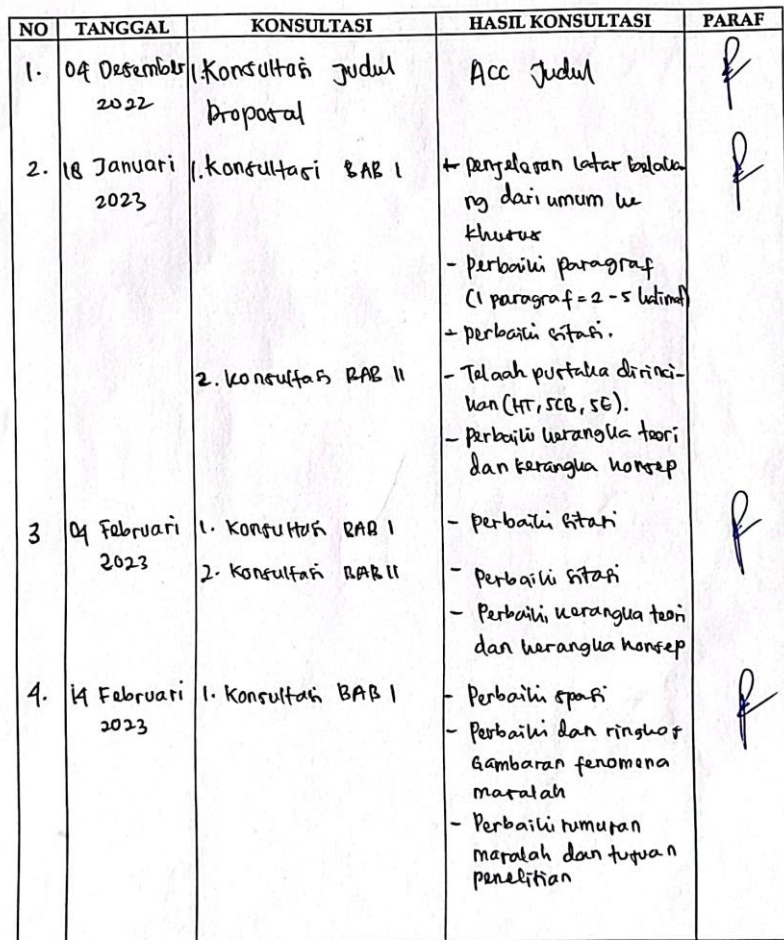 NO TANGGAL KONSULTASI HASIL KONSULTASI PARAF
1. 04 Desember 1. Konsultasi Judul Acc Judul
2022 Proposal
2. 18 Januari 1. Konsultasi BAB I + penjelasan latar belaka
2023 ng dari umum ke
khusus
- perbaiki paragraf
(1 paragraf = 2 - 5 kalimat)
+ perbaiki sitasi.
2. Konsultasi BAB II - Telaah pustaka dirinci-
kan (HT, SCB, SE).
- perbaiki kerangka teori
dan kerangka konsep
3 04 Februari 1. Konsultasi BAB I - perbaiki sitasi
2023 2. Konsultasi BAB II - Perbaiki sitasi
- Perbaiki, kerangka teori
dan kerangka konsep
4. 14 Februari 1. Konsultasi BAB I - Perbaiki spasi
2023 - Perbaiki dan ringkas
Gambaran fenomena
masalah
- Perbaiki rumusan
masalah dan tujuan
penelitian